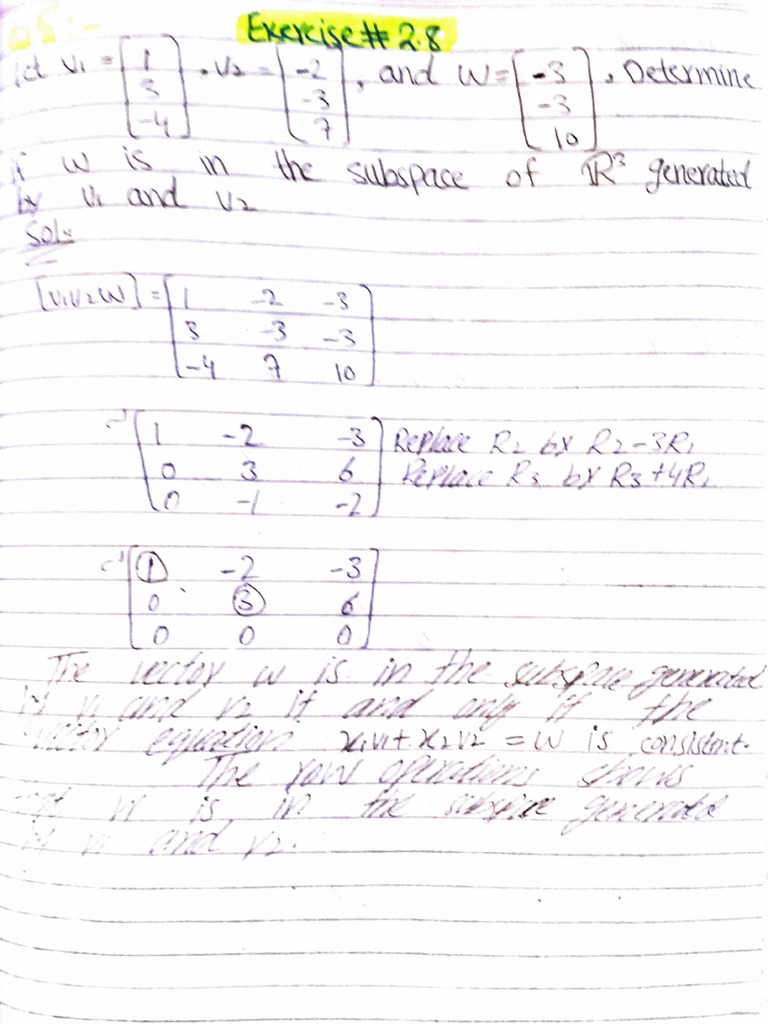 Exercise # 2.8
let v1 = [1 3 -4], v2 = [-2 -3 7], and W = [-3 -3 10], Determine
if w is in the subspace of ℝ³ generated
by v1 and v2
Sol:-
[v1 v2 w] = [1 -2 -3
3 -3 -3
-4 7 10]
~ [1 -2 -3 Replace R2 by R2-3R1
0 3 6 Replace R3 by R3+4R1
0 -1 -2]
~ [1 -2 -3
0 3 6
0 0 0]
The vector w is in the subspace generated
by v1 and v2 if and only if the
vector equation x1v1+x2v2 = w is consistent.
The row operations shows
that w is in the subspace generated
by v1 and v2.